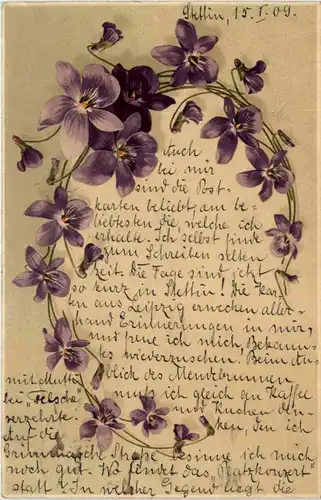 Stettin, 15.I.09.
Auch
bei mir
sind die Post-
karten beliebt, am be-
liebtesten die, welche ich
erhalte. Ich selbst finde
zum Schreiben selten
Zeit. Die Tage sind jetzt
so kurz in Stettin! Die Kar-
ten aus Leipzig erwecken aller-
hand Erinnerungen in mir,
und freue ich mich, Bekann-
tes wiederzusehen. Beim An-
blick des Mendebrunnen
muß ich gleich an Kaffee
und Kuchen den-
ken, den ich
mit Mutti
bei Felsche
verzehrte.
Auf die
Grimmaische Straße besinne ich mich
noch gut. Wo findet das "Platzkonzert"
statt? In welcher Gegend liegt die